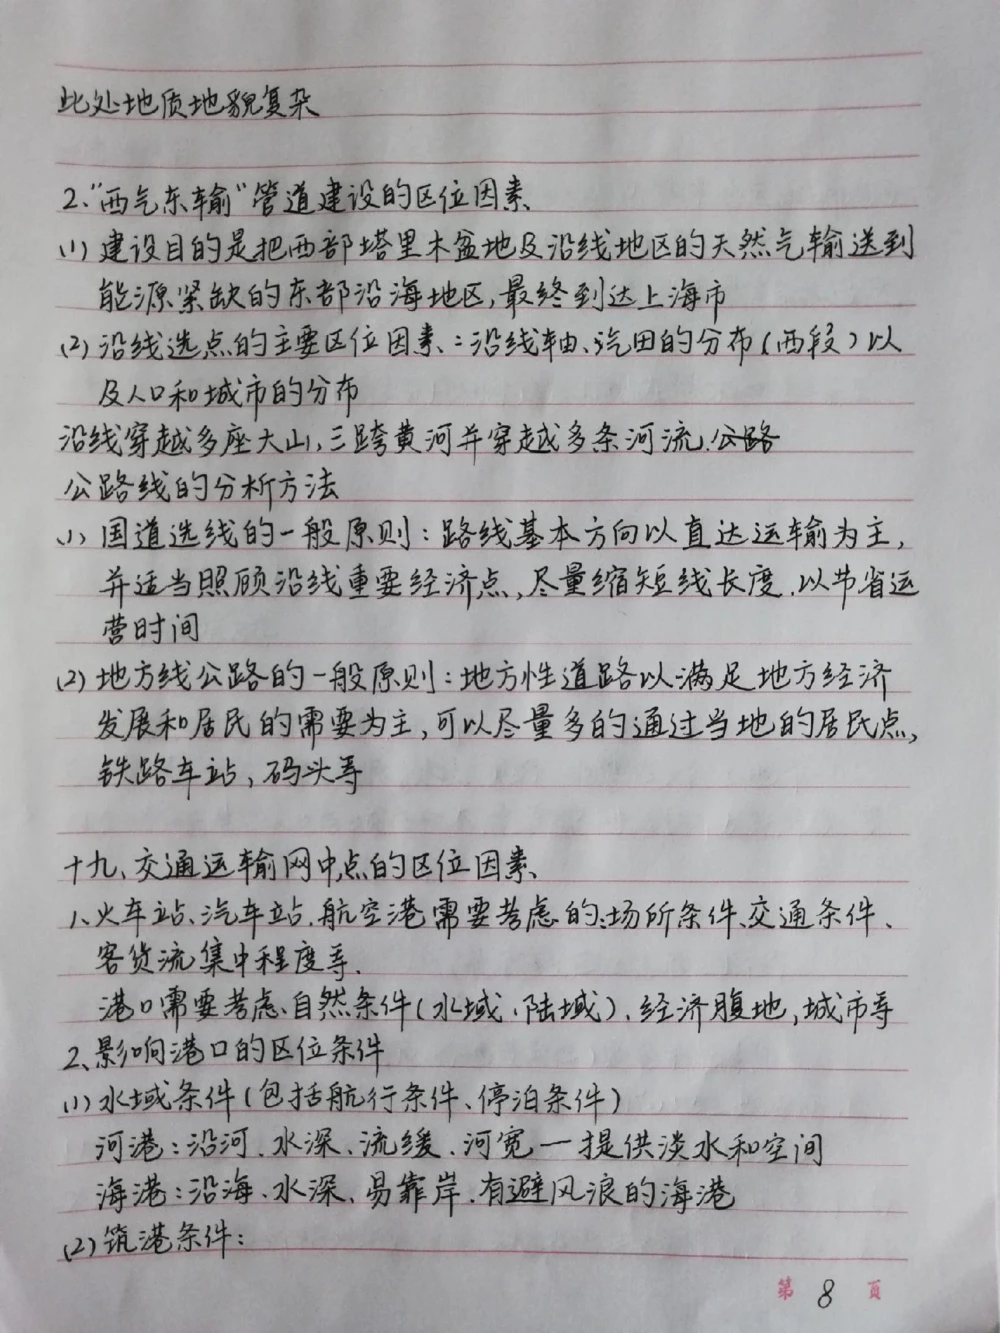 此处地质地貌复杂
2、"西气东输"管道建设的区位因素
(1) 建设目的是把西部塔里木盆地及沿线地区的天然气输送到
能源紧缺的东部沿海地区,最终到达上海市
(2) 沿线选点的主要区位因素:沿线油、汽田的分布(西段)以
及人口和城市的分布
沿线穿越多座大山,三跨黄河并穿越多条河流.公路
公路线的分析方法
(1) 国道选线的一般原则:路线基本方向以直达运输为主,
并适当照顾沿线重要经济点,尽量缩短线长度.以节省运
营时间
(2) 地方线公路的一般原则:地方性道路以满足地方经济
发展和居民的需要为主,可以尽量多的通过当地的居民点,
铁路车站,码头等
十九、交通运输网中点的区位因素
1、火车站、汽车站、航空港需要考虑的:场所条件、交通条件、
客货流集中程度等.
港口需要考虑:自然条件(水域、陆域)、经济腹地,城市等
2、影响港口的区位条件
(1) 水域条件(包括航行条件、停泊条件)
河港:沿河、水深、流缓、河宽一提供淡水和空间
海港:沿海、水深、易靠岸、有避风浪的海港
(2) 筑港条件:
第 8 页